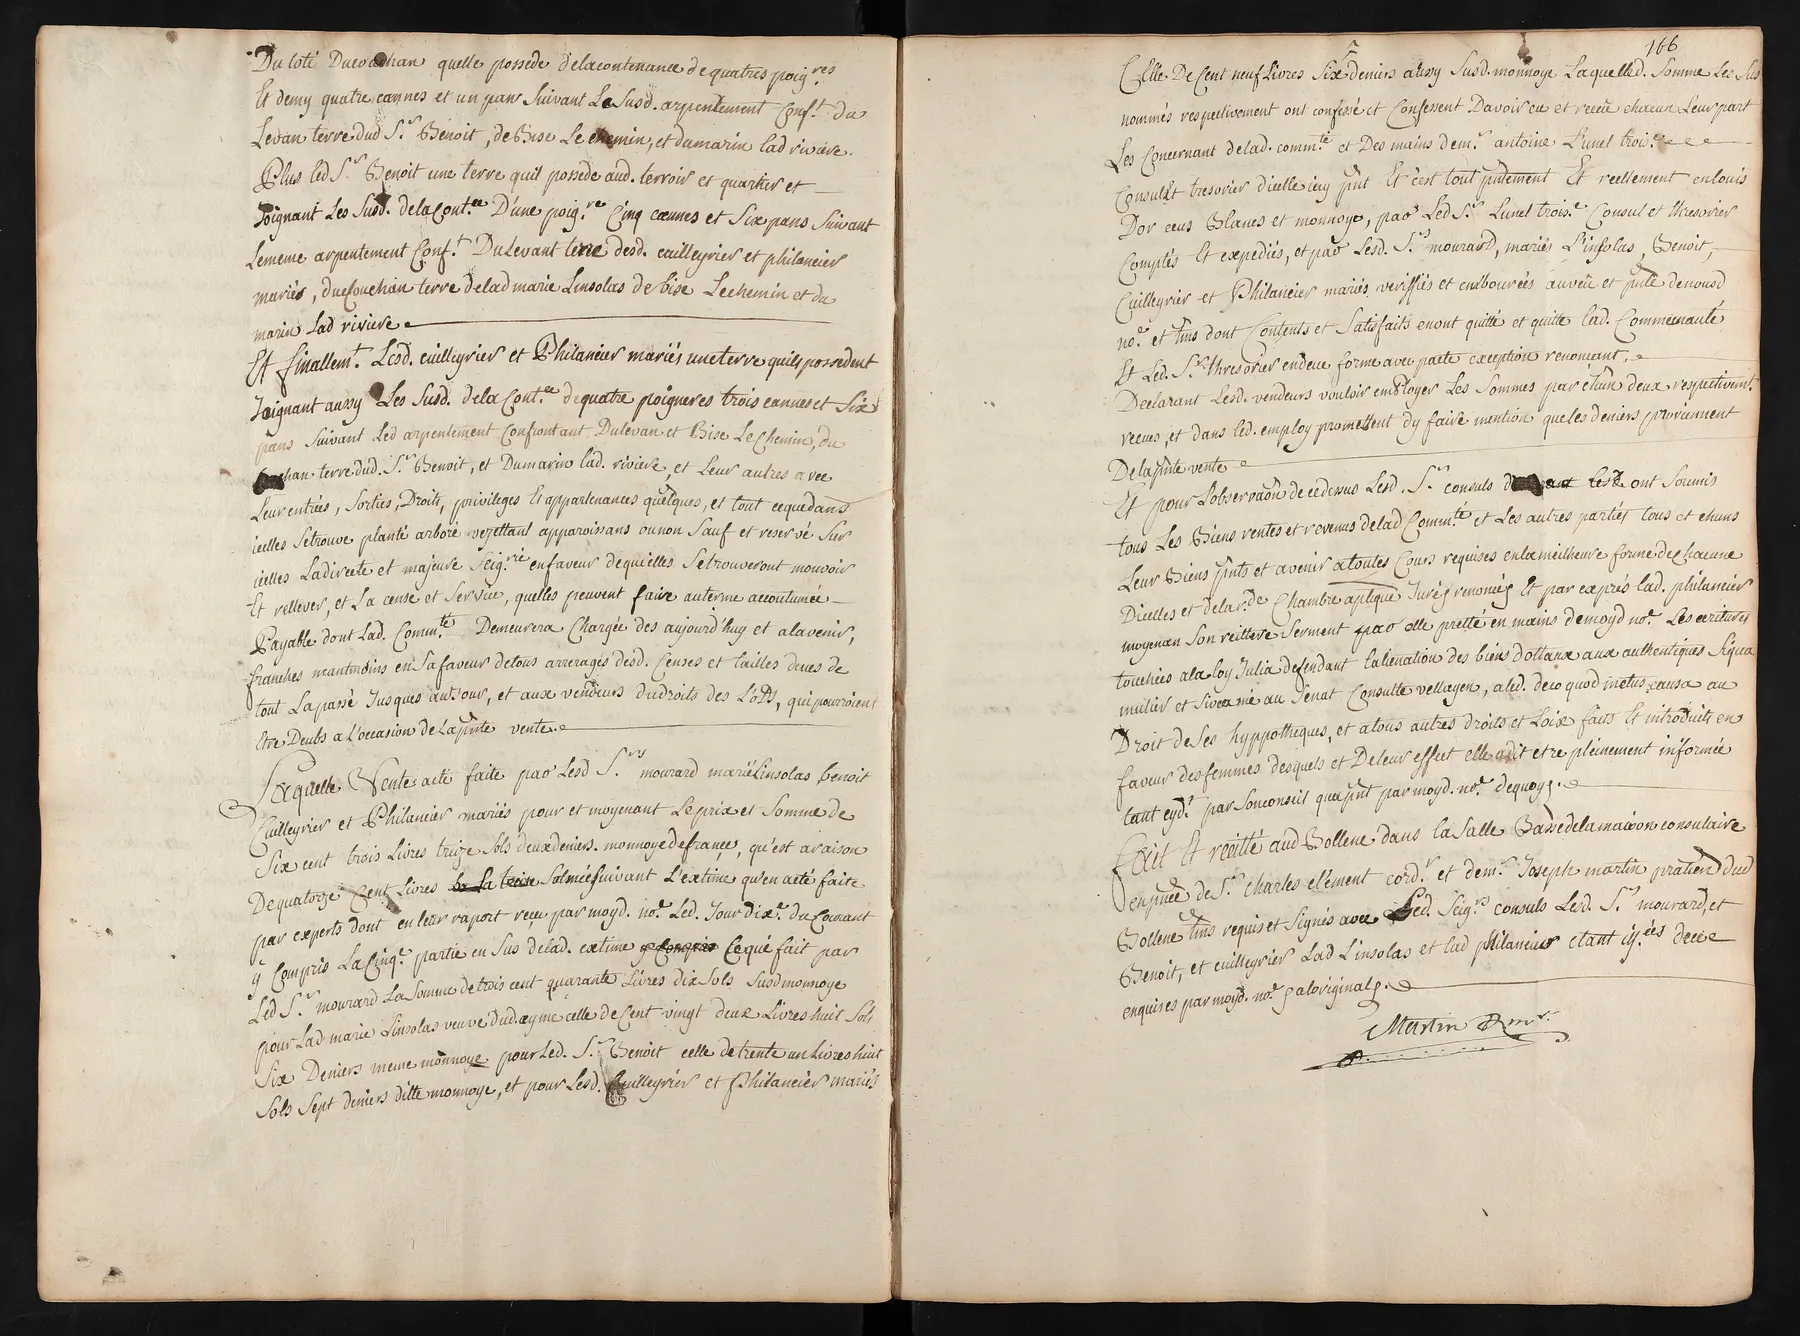 Du Coté Ducouchan quelle possede delacontenance de quatres poig.res
Et demy quatre cannes et un pan Suivant Le Susd. arpentement Conf.t du
Levan terre dud S.r Benoit, de Bise Le chemin, et dumarin lad riviere.
Plus led S.r Benoit une terre quil possede aud. terroir et quartier et
Joignant Les Susd. dela Cont.ce D'une poig.re Cinq cannes et Six pans Suivant
Lememe arpentement Conf.t Du Levant terre desd. cuilleyrier et philancier
mariés, ducouchan terre delad marie Linsolas de bise Lechemin et du
marin Lad riviere
Et finallem.t Lesd. cuilleyrier et Philancier mariés uneterre quils possedent
Joignant aussy Les Susd. dela Cont.ce dequatre poigneres trois cannes et Six
pans Suivant Led arpentement Confrontant Dulevan et Bise Le Chemin, du
chan terre dud. S.r Benoit, et Dumarin lad. riviere, et Leur autres avec
Leur entrées, Sorties, Droits, privileges Et appartenances quelques, et tout cequedans
icelles Setrouve planté arboré vegettant apparoissans ounon Sauf et reservé Sur
icelles Ladirecte et majeure Seig.rie enfaveur dequi elles Setrouveront mouvoir
Et rellever, et La cense et Service, quelles peuvent faire auterme accoutumée
Payable dont Lad. Comm.té Demeurera Chargée des aujourd'huy et alavenir,
franches meantmoins en Safaveur detous arrerages desd. Censes et tailles deues de
tout Lapassé Jusques aut Jour, et aux vendeurs dudroits des Lods, qui pourroient
Etre Deubs a L'occasion de Lapnte vente.
Laquelle Vente acté faite par Lesd S.rs mourard marie Linsolas benoit
Cuilleyrier et Philancier mariés pour et moyenant Leprix et Somme de
Six cent trois Livres treize Sols deuxdeniers monnoye defrance, qu'est araison
De quatorze Cent Livres La Salmée Suivant L'extime qu'en acté faite
par experts dont en leur raport reçu par moyd. no.re Led. Jour dix.e du Courant
y Compris La Cinq.e partie en Sus delad. extime y Compris Ce qué fait par
Led S.r mourard La Somme detrois cent quarante Livres dix Sols Susd monnoye
pour Lad marie Linsolas veuve dud. aymé celle de Cent vingt deux Livres huit Sols
Six Deniers meme monnoye pour Led. S.r Benoit celle de trente un Livres huit
Sols Sept deniers ditte monnoye, et pour Lesd. Cuilleyrier et Philancier mariés
166
Celle De Cent neuf Livres Six deniers aussy Susd. monnoye Laquelled. Somme Les Sus
nommés respectivement ont confessé et Confessent Davoir eu et receu chacun Leur part
Les Concernant delad. comm.té et Des mains dem.r antoine Lunel trois.e
Consul Et tresorier d'icelle icy pnt Et c'est tout pntement Et reellement enlouis
Dor ecus Blancs et monnoye, par Led S.r Lunel trois.e Consul et thresorier
Comptés Et expediés, et par Lesd. S.rs mourard, mariés Linsolas, Benoit,
Cuilleyrier et Philancier mariés verifiés et embourcés auvëu et pnce denousd
no.re et tms dont Contents et Satisfaits enont quitté et quitte Lad. Communauté
Et Led. S.r thresorier endeue forme avec pacte exception renoncant,
Declarant Lesd. vendeurs vouloir employer Les Sommes par chun deux respectivem.t
receues, et dans led. employ promettent dy faire mention queles deniers proviennent
Delapnte vente
Et pour Lobservaõn de cedessus Lesd. S.rs consuls ont Soumis
tous Les Biens rentes et revenus delad Comm.té et Les autres parties tous et chuns
Leur Biens pnts et avenir atoutes Cours requises enlameilheure forme dechacune
Dicelles et dela r.de Chambre aplique Jurés renonciés Et par exprés lad. philancier
moyenan Son reittere Serment par elle pretté en mains demoyd no.re Les ecritures
touchées ala loy Julia defendant lalienation des biens dottaux aux authentiques Siqua
mulier et Siveamé au Senat Consulte velleyen, aled. deco quod metus causa au
Droit de Ses hyppotheques, et atous autres droits et Loix faits Et introduits en
faveur desfemmes desquels et Deleur effect elle adit etre pleinement informée
tant eyd.t par Sonconseil quapnt par moyd. no.re dequoy.
Fait Et recitté aud Bollene dans la Salle Basse delamaison consulaire
enpnce de S.r Charles clement cord.r et dem.r Joseph martin praticn dud
Bollene tms requis et Signés avec Led. Seig.rs consuls Lesd. S.rs mourard, et
Benoit, et cuilleyrier Lad Linsolas et lad philancier etant ill.rées de ce
enquises par moyd. no.re aloriginal.
Martin no.re